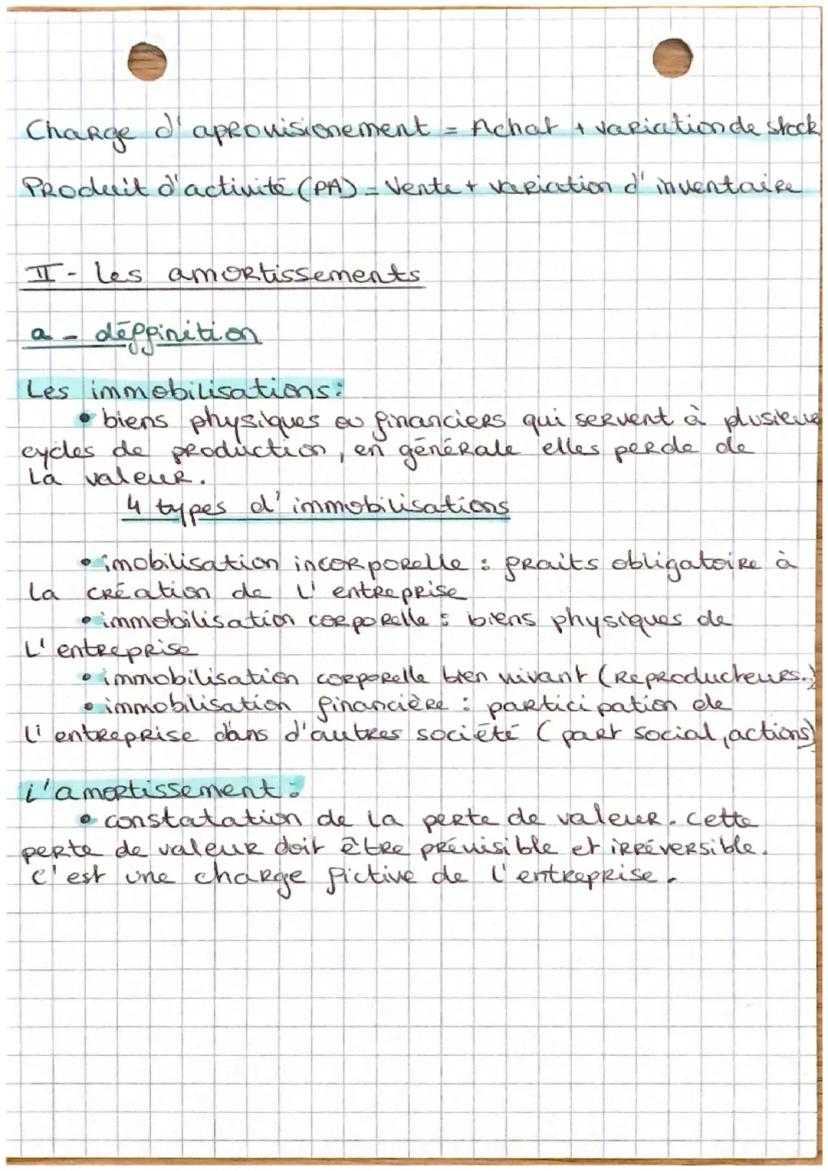 Charge d'aprovisionement = Achat + variation de stock
Produit d'activité (PA) = Vente + variation d'inventaire
II - Les amortissements
a - déffinition
Les immobilisations :
• biens physiques ou financiers qui servent à plusieurs
cycles de production, en générale elles perde de
la valeur.
4 types d'immobilisations
• imobilisation incorporelle : fraits obligatoire à
la création de l'entreprise
• immobilisation corporelle : biens physiques de
l'entreprise
• immobilisation corporelle bien vivant (Reproducteurs.)
• immobilisation financière : participation de
l'entreprise dans d'autres société (part social, actions)
L'amortissement :
• constatation de la perte de valeur. cette
perte de valeur doit être prévisible et irréversible.
c'est une charge fictive de l'entreprise.